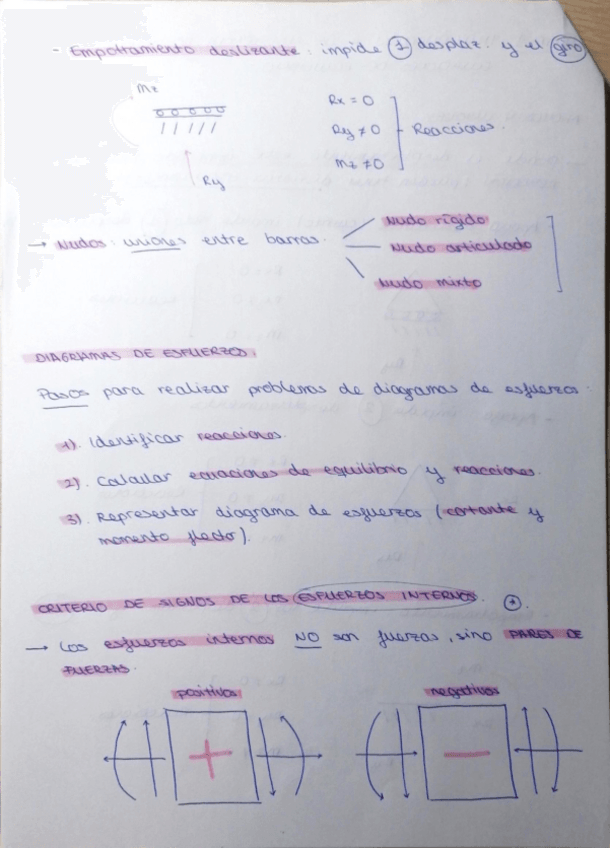 - Empotramiento deslizante: impide 1 desplaz. y el giro
Mz
Rx = 0
Ry ≠ 0
Reacciones.
Mz ≠ 0
Ry
Nudo rígido
→ Nudos: uniones entre barras.
Nudo articulado
Nudo mixto
DIAGRAMAS DE ESFUERZOS.
Pasos para realizar problemas de diagramas de esfuerzos.
1). Identificar reacciones.
2). Calcular ecuaciones de equilibrio y reacciones.
3). Representar diagrama de esfuerzos (cortante y
momento flector).
CRITERIO DE SIGNOS DE LOS ESFUERZOS INTERNOS. +.
→ Los esfuerzos internos NO son fuerzas, sino PARES DE
FUERZAS.
positivos
negativos
+
−